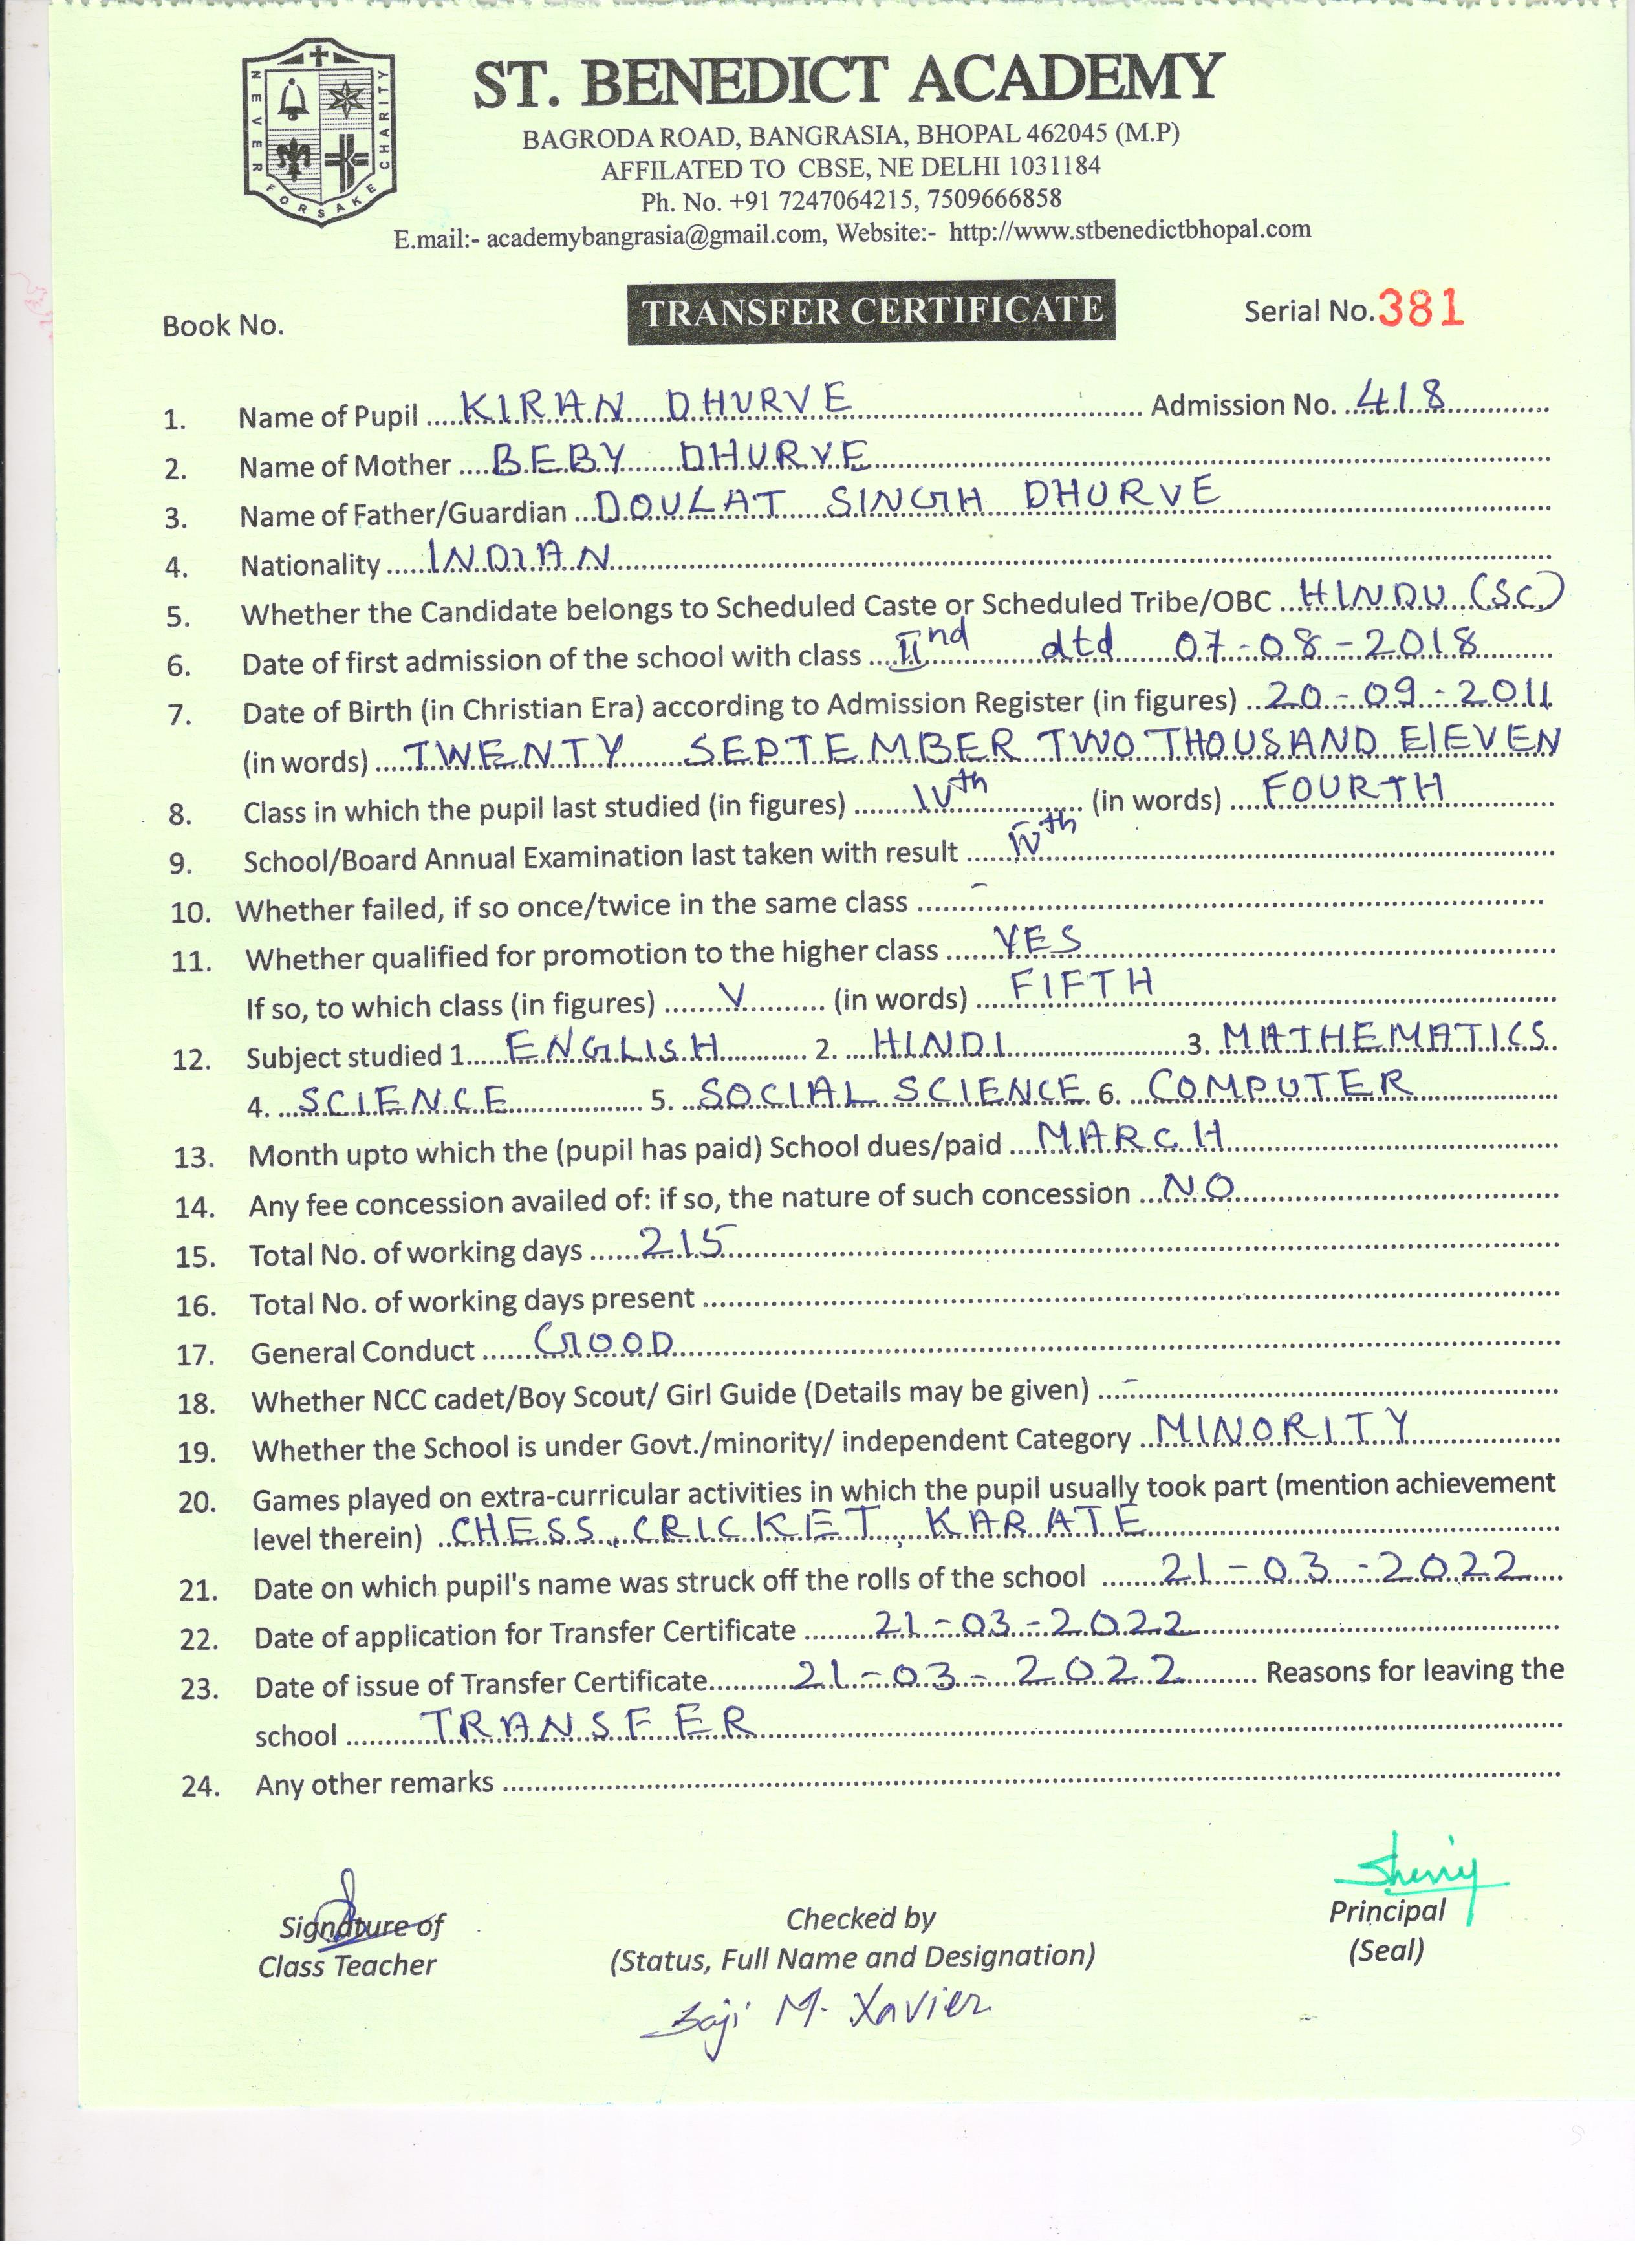 NEVER FORSAKE CHARITY
ST. BENEDICT ACADEMY
BAGRODA ROAD, BANGRASIA, BHOPAL 462045 (M.P)
AFFILATED TO CBSE, NE DELHI 1031184
Ph. No. +91 7247064215, 7509666858
E.mail:- academybangrasia@gmail.com, Website:- http://www.stbenedictbhopal.com
Book No. TRANSFER CERTIFICATE Serial No. 381
1. Name of Pupil KIRAN DHURVE Admission No. 418
2. Name of Mother BEBY DHURVE
3. Name of Father/Guardian DOULAT SINGH DHURVE
4. Nationality INDIAN
5. Whether the Candidate belongs to Scheduled Caste or Scheduled Tribe/OBC HINDU (SC)
6. Date of first admission of the school with class IInd dtd 07-08-2018
7. Date of Birth (in Christian Era) according to Admission Register (in figures) 20-09-2011
(in words) TWENTY SEPTEMBER TWO THOUSAND ElEVEN
8. Class in which the pupil last studied (in figures) IVth (in words) FOURTH
9. School/Board Annual Examination last taken with result IVth
10. Whether failed, if so once/twice in the same class -
11. Whether qualified for promotion to the higher class YES
If so, to which class (in figures) V (in words) FIFTH
12. Subject studied 1. ENGLISH 2. HINDI 3. MATHEMATICS
4. SCIENCE 5. SOCIAL SCIENCE 6. COMPUTER
13. Month upto which the (pupil has paid) School dues/paid MARCH
14. Any fee concession availed of: if so, the nature of such concession NO
15. Total No. of working days 215
16. Total No. of working days present
17. General Conduct GOOD
18. Whether NCC cadet/Boy Scout/ Girl Guide (Details may be given) -
19. Whether the School is under Govt./minority/ independent Category MINORITY
20. Games played on extra-curricular activities in which the pupil usually took part (mention achievement
level therein) CHESS, CRICKET, KARATE
21. Date on which pupil's name was struck off the rolls of the school 21-03-2022
22. Date of application for Transfer Certificate 21-03-2022
23. Date of issue of Transfer Certificate 21-03-2022 Reasons for leaving the
school TRANSFER
24. Any other remarks
Sherry
Signature of Checked by Principal
Class Teacher (Status, Full Name and Designation) (Seal)
M. Xavier